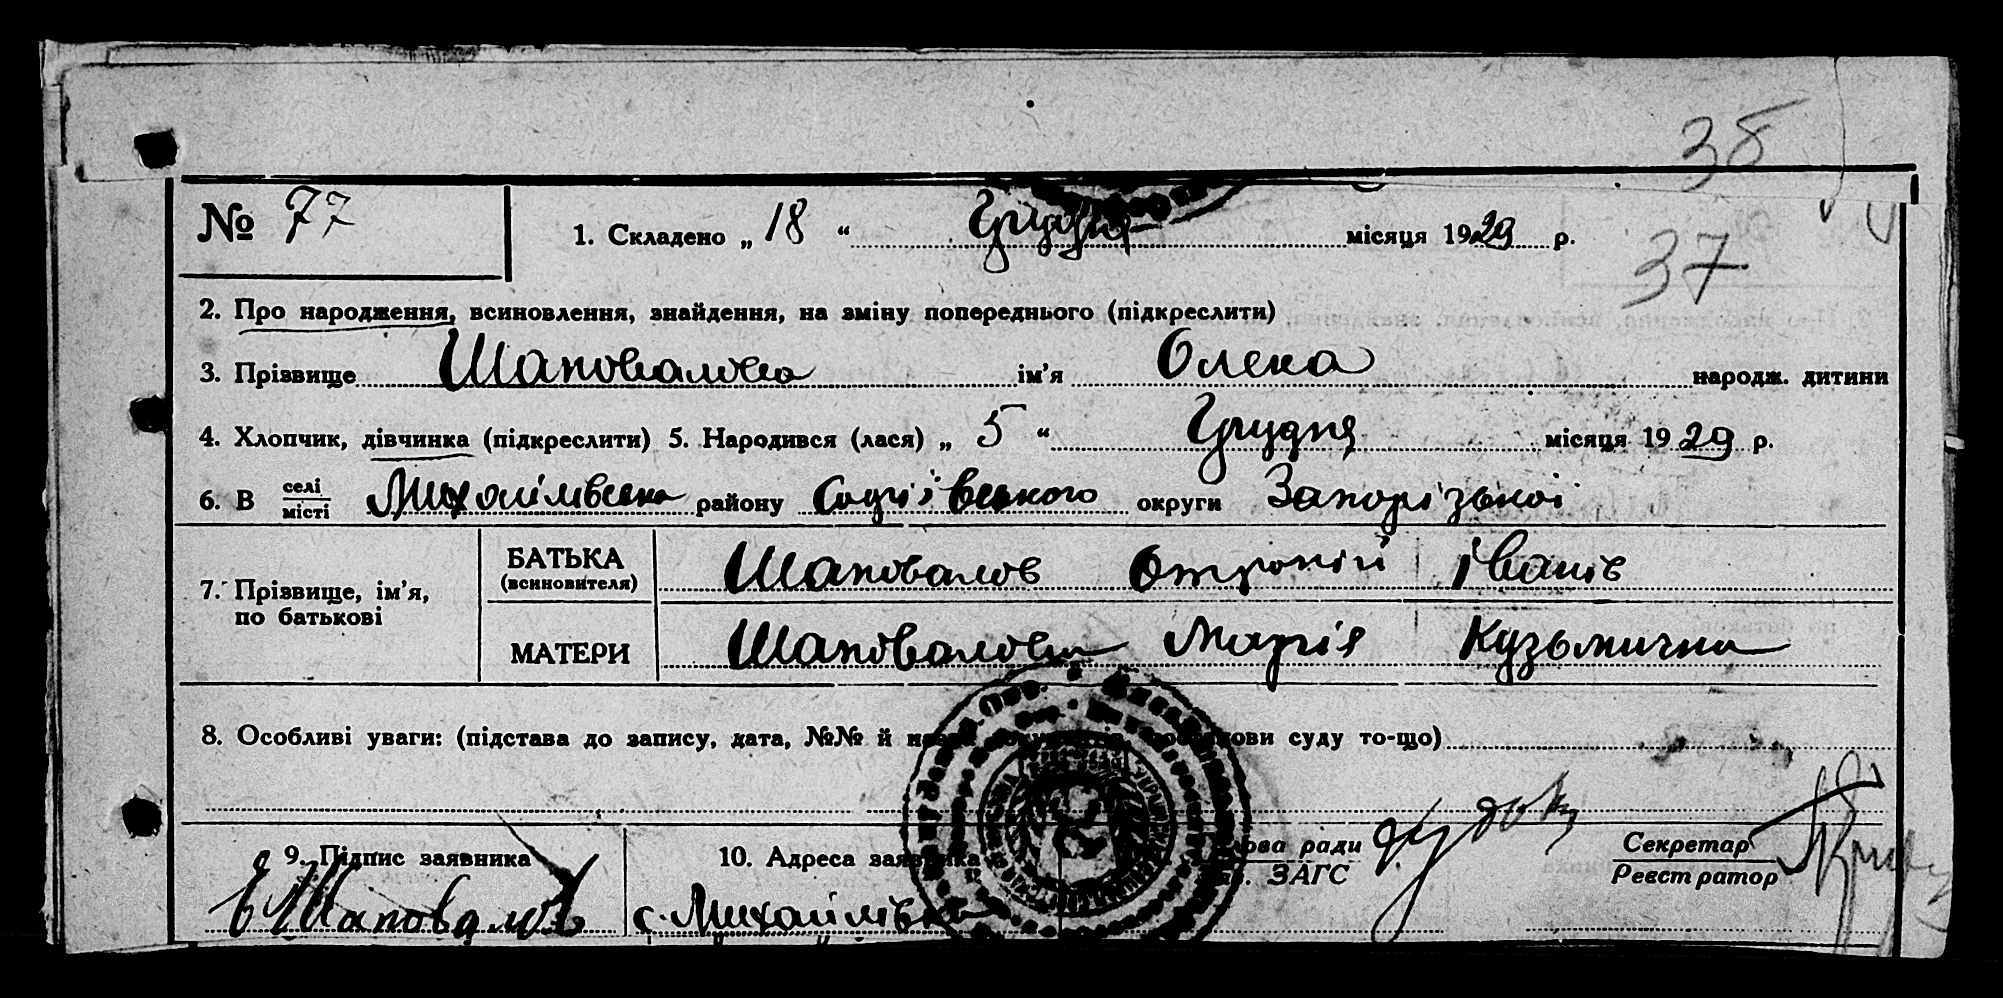 38
№ 77 1. Складено „ 18 “ Грудня місяця 1929 р.
37
2. Про народження, всиновлення, знайдення, на зміну попереднього (підкреслити)
3. Прізвище Шаповалова ім’я Олека народж. дитини
4. Хлопчик, дівчинка (підкреслити) 5. Народився (лася) „ 5 “ Грудня місяця 1929 р.
6. В селі місті району Софіівського округи Запорізькоі
7. Прізвище, ім’я, по батькові
БАТЬКА (всиновителя) Шаповалов Іванів
МАТЕРИ Шаповалова Марія Кузьмична
8. Особливі уваги: (підстава до запису, дата, №№ й суду то-що)
9. Підпис заявника 10. Адреса заявника ради Секретар
ЗАГС Реєстратор
Шаповалов с. Михайлівка